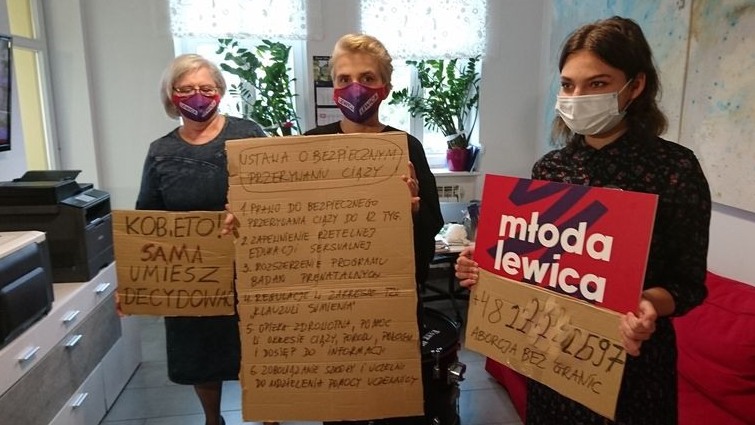 KOBIETO!
SAMA
UMIESZ
DECYDOWAĆ
USTAWA O BEZPIECZNYM
PRZERYWANIU CIĄŻY
1. PRAWO DO BEZPIECZNEGO
PRZERYWANIA CIĄŻY DO 12 TYG.
2. ZAPEWNIENIE RZETELNEJ
EDUKACJI SEKSUALNEJ
3. ROZSZERZENIE PROGRAMU
BADAŃ PRENATALNYCH
4. REGULACJE W ZAKRESIE TZW
KLAUZULI SUMIENIA"
5. OPIEKA ZDROWOTNA, POMOC
W OKRESIE CIĄŻY, PORODU, POŁOGU
I DOSTĘP DO INFORMACJI
6. ZOBOWIĄZANIE SZKOŁY I UCZELNI
DO UDZIELENIA POMOCY UCZENNICY
młoda
lewica
+48
597
ABORCJA BEZ GRANIC